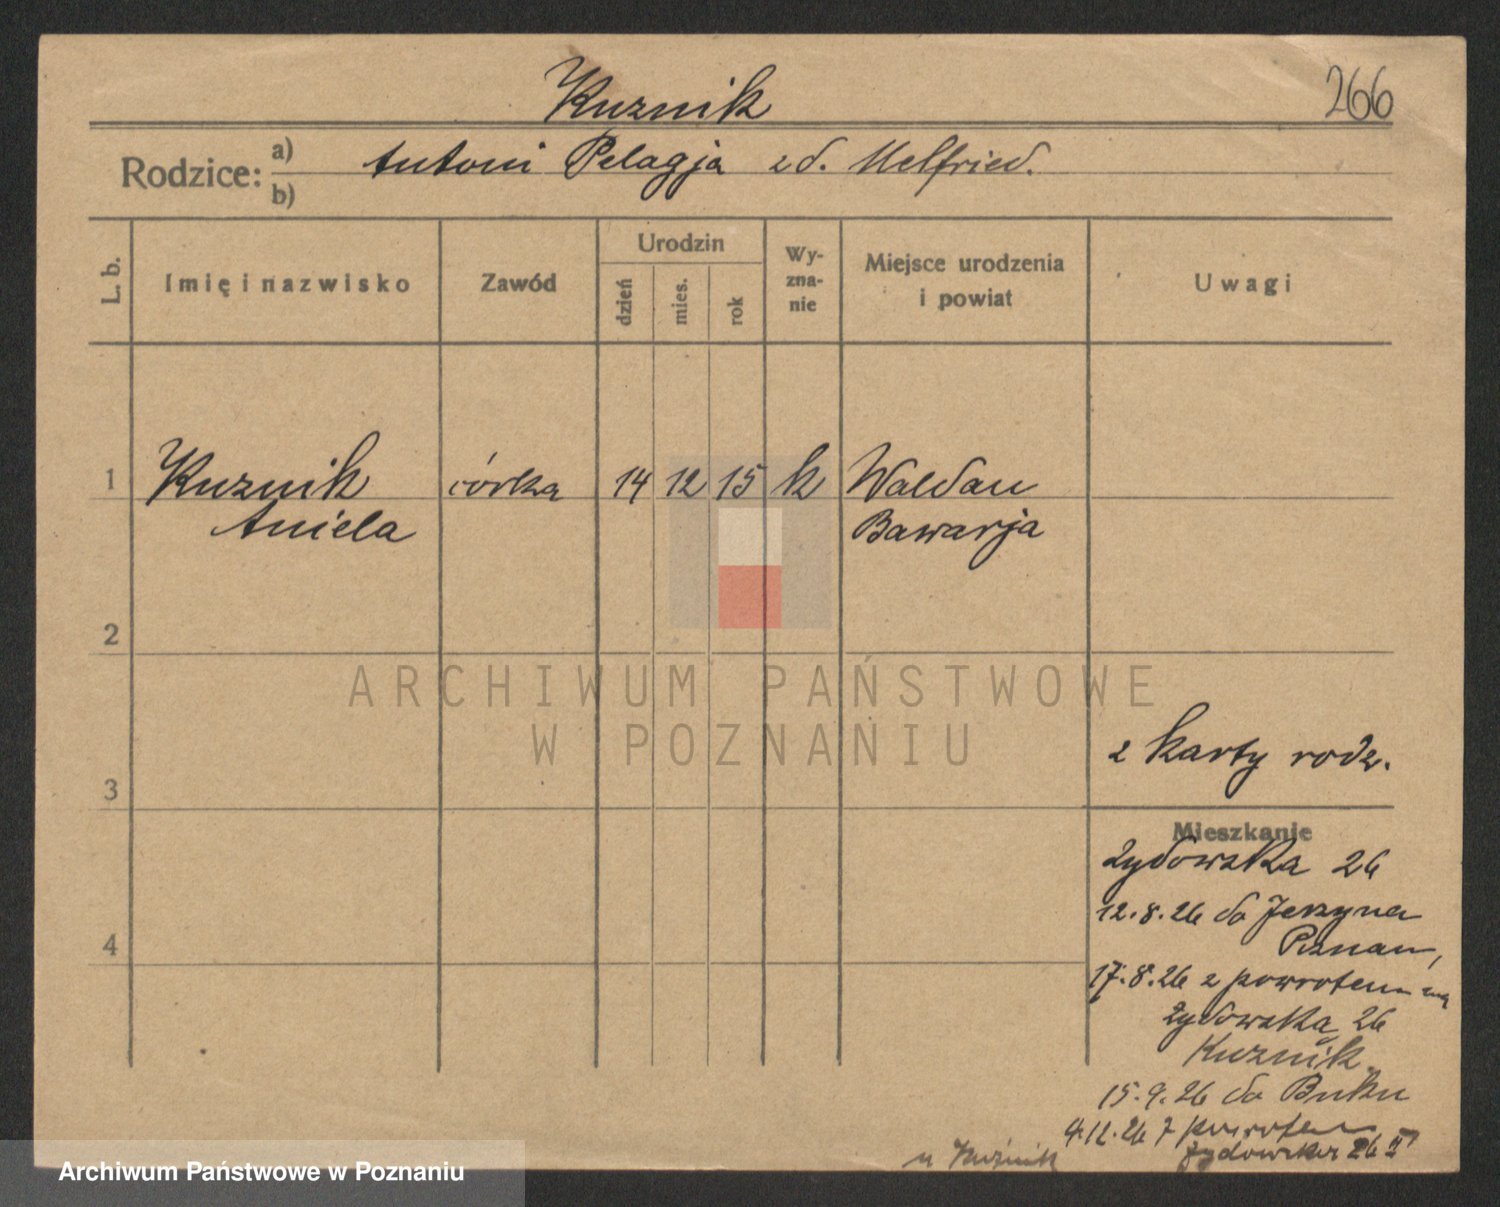 Kuznik
266
Rodzice: a) Antoni Pelagja zd. Helfried.
b)
L. b.
Imię i nazwisko
Zawód
Urodzin
dzień
mies.
rok
Wy-
zna-
nie
Miejsce urodzenia
i powiat
Uwagi
1 Kuznik córka 14 12 15 k Waldau
Aniela Bawarja
2
3
4
z karty rodz.
Mieszkanie
Żydowska 26
12.8.26 do Jerzyna
Poznan,
17.8.26 z powrotem na
Żydowską 26
Kuznik
15.9.26 do Buku
4.12.26 z powrotem
Żydowska 26 II
u Kuźnik
ARCHIWUM PAŃSTWOWE
W POZNANIU
Archiwum Państwowe w Poznaniu